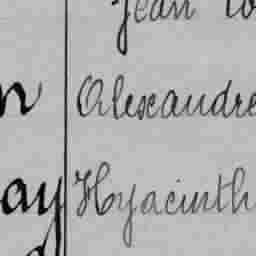 Jean
n Alexandre
ay Hyacinth